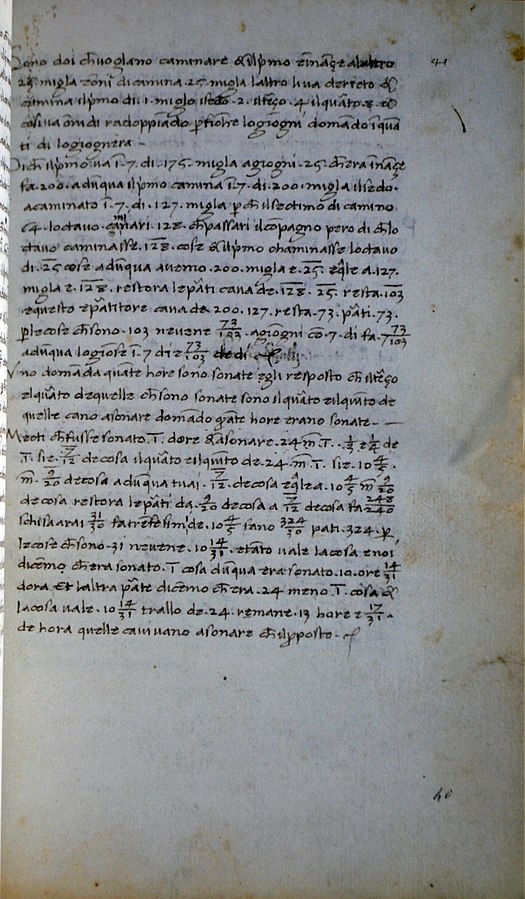 41
Sono doi che voglano caminare & il p̄mo è inançe a laltro
25 migla & oni dí camina .25. migla laltro li va derieto &
camina il p̄mo dì .1. miglo il secō .2. il terço .4. il quarto .8. &
cosi va oni dí radoppiādo p̄ fin che logiogni domādo i quā
ti dí logiognera -
Di che il p̄mo va ī .7. dí .175. migla agiogni .25. che era inançe
fa .200. adunqua il p̄mo camina ī .7. dí .200. migla il secōdo
a caminato ī .7. dí .127. migla p̄ che il sectimo dí camino
64. loctavo caminari .128. che passari il cōpagno pero di che lo
ctavo caminasse .128. cose & il p̄mo chaminasse loctavo
dí .25 cose adūqua avemo .200. migla e .25. eq̄le a .127.
migla e .128. restora le pāti cava de .128. .25. resta .103
e questo e p̄atitore cava de .200. 127. resta .73. pāti .73.
p̄ le cose che sono .103 ne vene 73/103 . agiogni cō .7. dí fa .7 73/103
adūqua logiōse ī .7 dí e 73/103
Uno domāda quāte hore sono sonate egli resposto che il terço
e il quarto de quelle che sono sonate sono il quarto e il quīto de
quelle cano a sonare domādo quāte hore erano sonate -
Mecti che fusse sonato .1. dore & a sonare .24 m̄ .1. . 1/3 e 1/4 de
.1. sie . 7/12 de cosa il quarto e il quīto de .24. m̄ .1. sie .10 4/5 .
m̄ . 9/20 de cosa adūqua tu ai . 7/12 . de cosa eq̄le a .10 4/5 m̄ 9/20
de cosa restora le pāti da . 9/20 de cosa a 7/12 de cosa fa 248/240
schisa arai 31/30 fa trētesimi de .10 4/5 fano 324/30 pati .324. p̄
le cose che sono .31 ne vene .10 14/31 . e tāto vale la cosa e noi
dicemo che era sonato .1 cosa dūqua era sonato .10. ore 14/31
dora. Et laltra p̄ate dicemo che era .24 meno .1. cosa &
la cosa vale .10 14/31 trallo de .24. remane .13 hore e 17/31 .
de hora quelle cavivano a sonare che il p̄posto -
40